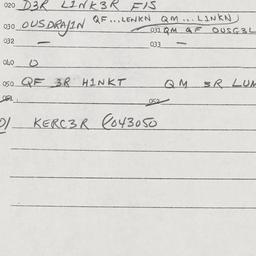 020 D3R L1NK3R F1S
030 OUSDRAJ1N QF...LENKN QM...L1NKN
031 QM QF OUSG3L
032 — 033 —
040 O
050 QF 3R H1NKT QM 3R LUM
052
01 KERC3R 043050